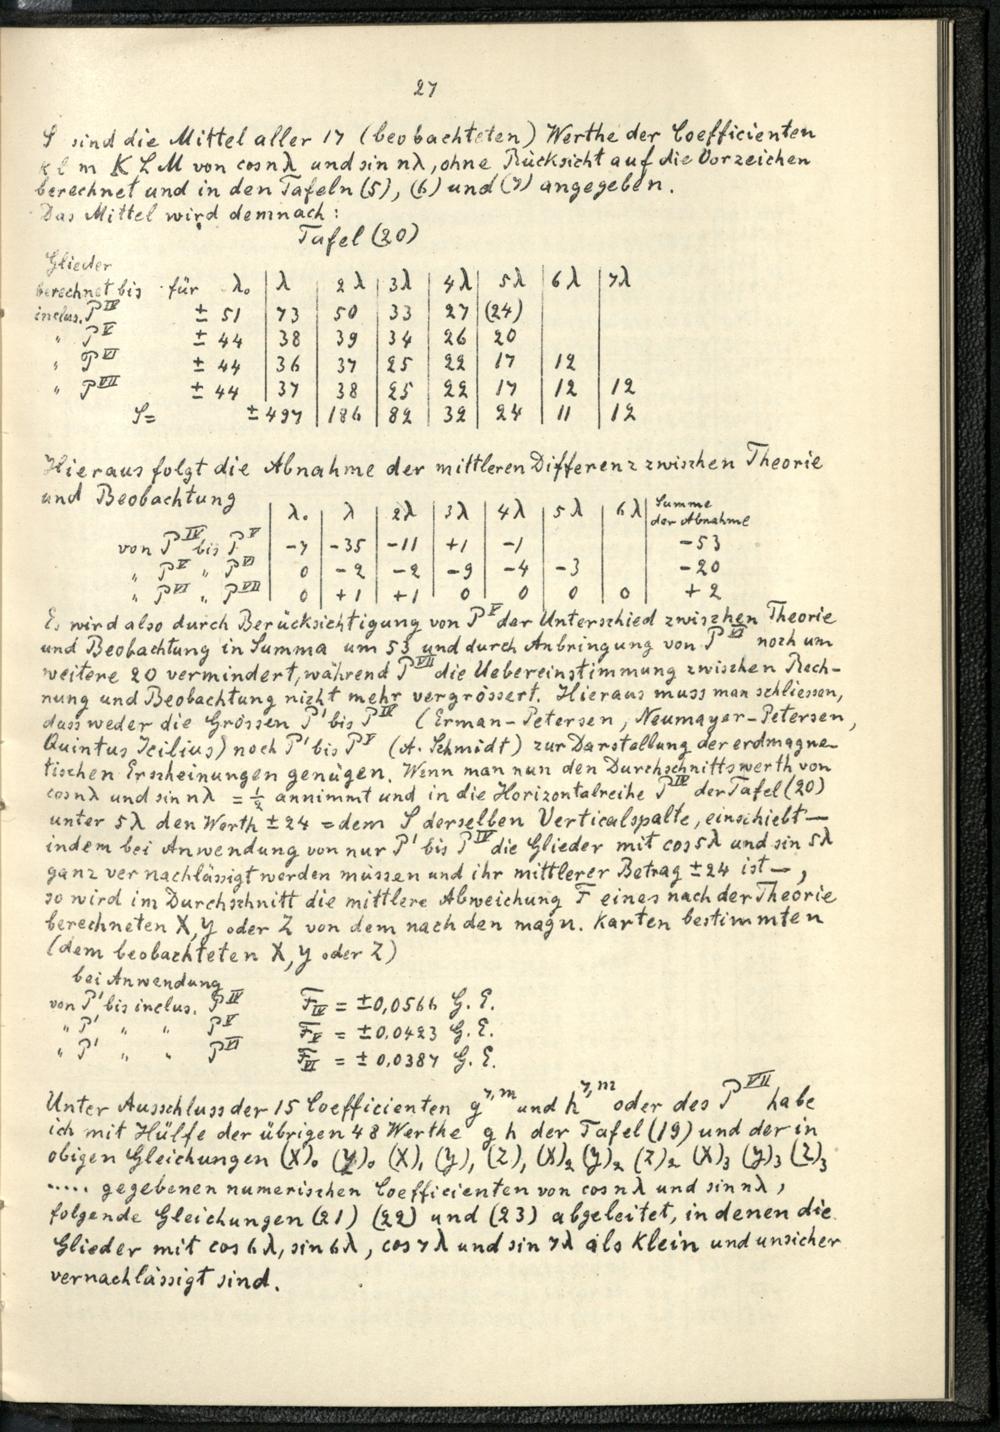 27
S sind die Mittel aller 17 (beobachteten) Werthe der Coefficienten
k l m K L M von cos nλ und sin nλ, ohne Rücksicht auf die Vorzeichen
berechnet und in den Tafeln (5), (6) und (7) angegeben.
Das Mittel wird demnach:
Tafel (20)
Glieder
berechnet bis für λ₀ | λ | 2λ | 3λ | 4λ | 5λ | 6λ | 7λ
inclus. P^IV ± 51 | 73 | 50 | 33 | 27 | (24)
" P^V ± 44 | 38 | 39 | 34 | 26 | 20
" P^VI ± 44 | 36 | 37 | 25 | 22 | 17 | 12
" P^VII ± 44 | 37 | 38 | 25 | 22 | 17 | 12 | 12
S= ± 497 | 186 | 82 | 32 | 24 | 11 | 12
Hieraus folgt die Abnahme der mittleren Differenz zwischen Theorie
und Beobachtung | λ₀ | λ | 2λ | 3λ | 4λ | 5λ | 6λ | Summe der Abnahme
von P^IV bis P^V | -7 | -35 | -11 | +1 | -1 | | | -53
" P^V " P^VI | 0 | -2 | -2 | -9 | -4 | -3 | | -20
" P^VI " P^VII | 0 | +1 | +1 | 0 | 0 | 0 | 0 | +2
Es wird also durch Berücksichtigung von P^V der Unterschied zwischen Theorie
und Beobachtung in Summa um 53 und durch Anbringung von P^VI noch um
weitere 20 vermindert, während P^VII die Uebereinstimmung zwischen Rech-
nung und Beobachtung nicht mehr vergrössert. Hieraus muss man schliessen,
dass weder die Grössen P' bis P^IV (Erman-Petersen, Neumayer-Petersen,
Quintus Icilius) noch P' bis P^V (A. Schmidt) zur Darstellung der erdmagne-
tischen Erscheinungen genügen. Wenn man nun den Durchschnittswerth von
cos nλ und sin nλ = ½ annimmt und in die Horizontalreihe P^IV der Tafel (20)
unter 5λ den Werth ± 24 = dem S derselben Verticalspalte, einschiebt —
indem bei Anwendung von nur P' bis P^IV die Glieder mit cos 5λ und sin 5λ
ganz vernachlässigt werden müssen und ihr mittlerer Betrag ± 24 ist —,
so wird im Durchschnitt die mittlere Abweichung F eines nach der Theorie
berechneten X, Y oder Z von dem nach den magn. Karten bestimmten
(dem beobachteten X, Y oder Z)
bei Anwendung
von P' bis inclus. P^IV F_IV = ±0,0566 G. E.
" P' " " P^V F_V = ±0,0423 G. E.
" P' " " P^VI F_VI = ± 0,0387 G. E.
Unter Ausschluss der 15 Coefficienten g^7,m und h^7,m oder des P^VII habe
ich mit Hülfe der übrigen 48 Werthe g h der Tafel (19) und der in
obigen Gleichungen (X)₀ (Y)₀ (X)₁ (Y)₁ (Z)₁ (X)₂ (Y)₂ (Z)₂ (X)₃ (Y)₃ (Z)₃
..... gegebenen numerischen Coefficienten von cos nλ und sin nλ,
folgende Gleichungen (21) (22) und (23) abgeleitet, in denen die
Glieder mit cos 6λ, sin 6λ, cos 7λ und sin 7λ als klein und unsicher
vernachlässigt sind.